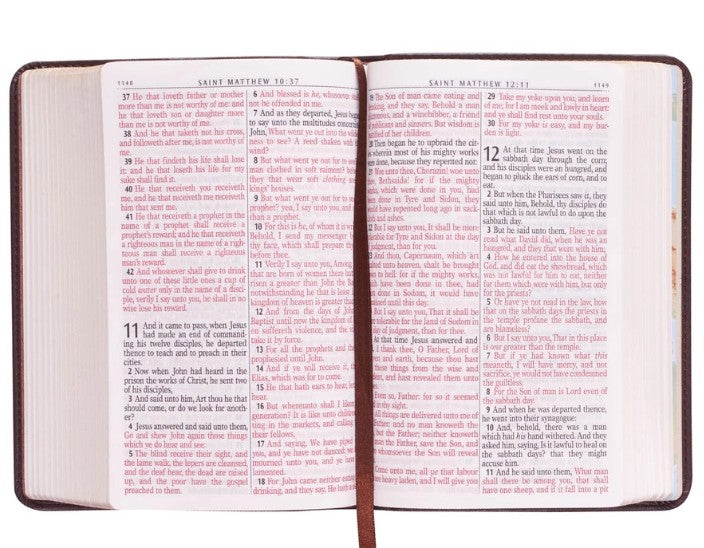 1148
SAINT MATTHEW 10:37
37 He that loveth father or mother
more than me is not worthy of me: and
he that loveth son or daughter more
than me is not worthy of me.
38 And he that taketh not his cross,
and followeth after me, is not worthy of
me.
39 He that findeth his life shall lose
it: and he that loseth his life for my
sake shall find it.
40 He that receiveth you receiveth
me, and he that receiveth me receiveth
him that sent me.
41 He that receiveth a prophet in the
name of a prophet shall receive a
prophet's reward; and he that receiveth
a righteous man in the name of a righ-
teous man shall receive a righteous
man's reward.
42 And whosoever shall give to drink
unto one of these little ones a cup of
cold water only in the name of a disci-
ple, verily I say unto you, he shall in no
wise lose his reward.
11 And it came to pass, when Jesus
had made an end of command-
ing his twelve disciples, he departed
thence to teach and to preach in their
cities.
2 Now when John had heard in the
prison the works of Christ, he sent two
of his disciples,
3 And said unto him, Art thou he that
should come, or do we look for anoth-
er?
4 Jesus answered and said unto them,
Go and shew John again those things
which ye do hear and see:
5 The blind receive their sight, and
the lame walk, the lepers are cleansed,
and the deaf hear, the dead are raised
up, and the poor have the gospel
preached to them.
6 And blessed is he, whosoever
not be offended in me.
7 And as they departed, Jesus
to say unto the multitudes
John, What went ye out into the
ness to see? A reed shaken with
wind?
8 But what went ye out for to
man clothed in soft raiment?
they that wear soft clothing
kings' houses.
9 But what went ye out for to
prophet? yea, I say unto you, and
than a prophet.
10 For this is he, of whom it is
Behold, I send my messenger
thy face, which shall prepare
before thee.
11 Verily I say unto you, Among
that are born of women there
risen a greater than John the
notwithstanding he that is least
kingdom of heaven is greater
12 And from the days of John
Baptist until now the kingdom of
en suffereth violence, and the
take it by force.
13 For all the prophets and the
prophesied until John.
14 And if ye will receive it,
Elias, which was for to come.
15 He that hath ears to hear, let
hear.
16 But whereunto shall I liken
generation? It is like unto children
ting in the markets, and calling
their fellows,
17 And saying, We have piped
you, and ye have not danced; we
mourned unto you, and ye have
lamented.
18 For John came neither eating
drinking, and they say, He hath
SAINT MATTHEW 12:11
1149
The Son of man came eating and
and they say, Behold a man
and a winebibber, a friend
publicans and sinners. But wisdom is
of her children.
Then began he to upbraid the cit-
wherein most of his mighty works
were done, because they repented not:
unto thee, Chorazin! woe unto
Bethsaida! for if the mighty
which were done in you, had
done in Tyre and Sidon, they
would have repented long ago in sack-
and ashes.
I say unto you, It shall be more
for Tyre and Sidon at the day
judgment, than for you.
And thou, Capernaum, which art
unto heaven, shalt be brought
to hell: for if the mighty works,
have been done in thee, had
done in Sodom, it would have
until this day.
But I say unto you, That it shall be
for the land of Sodom in
day of judgment, than for thee.
At that time Jesus answered and
I thank thee, O Father, Lord of
and earth, because thou hast
these things from the wise and
and hast revealed them unto
Even so, Father: for so it seemed
in thy sight.
All things are delivered unto me of
Father: and no man knoweth the
but the Father; neither knoweth
man the Father, save the Son, and
whomsoever the Son will reveal
unto me, all ye that labour
are heavy laden, and I will give you
29 Take my yoke upon you, and learn
of me; for I am meek and lowly in heart:
and ye shall find rest unto your souls.
30 For my yoke is easy, and my bur-
den is light.
12 At that time Jesus went on the
sabbath day through the corn;
and his disciples were an hungred, and
began to pluck the ears of corn, and to
eat.
2 But when the Pharisees saw it, they
said unto him, Behold, thy disciples do
that which is not lawful to do upon the
sabbath day.
3 But he said unto them, Have ye not
read what David did, when he was an
hungred, and they that were with him;
4 How he entered into the house of
God, and did eat the shewbread, which
was not lawful for him to eat, neither
for them which were with him, but only
for the priests?
5 Or have ye not read in the law, how
that on the sabbath days the priests in
the temple profane the sabbath, and
are blameless?
6 But I say unto you, That in this place
is one greater than the temple.
7 But if ye had known what this
meaneth, I will have mercy, and not
sacrifice, ye would not have condemned
the guiltless.
8 For the Son of man is Lord even of
the sabbath day.
9 And when he was departed thence,
he went into their synagogue:
10 And, behold, there was a man
which had his hand withered. And they
asked him, saying, Is it lawful to heal on
the sabbath days? that they might
accuse him.
11 And he said unto them, What man
shall there be among you, that shall
have one sheep, and if it fall into a pit